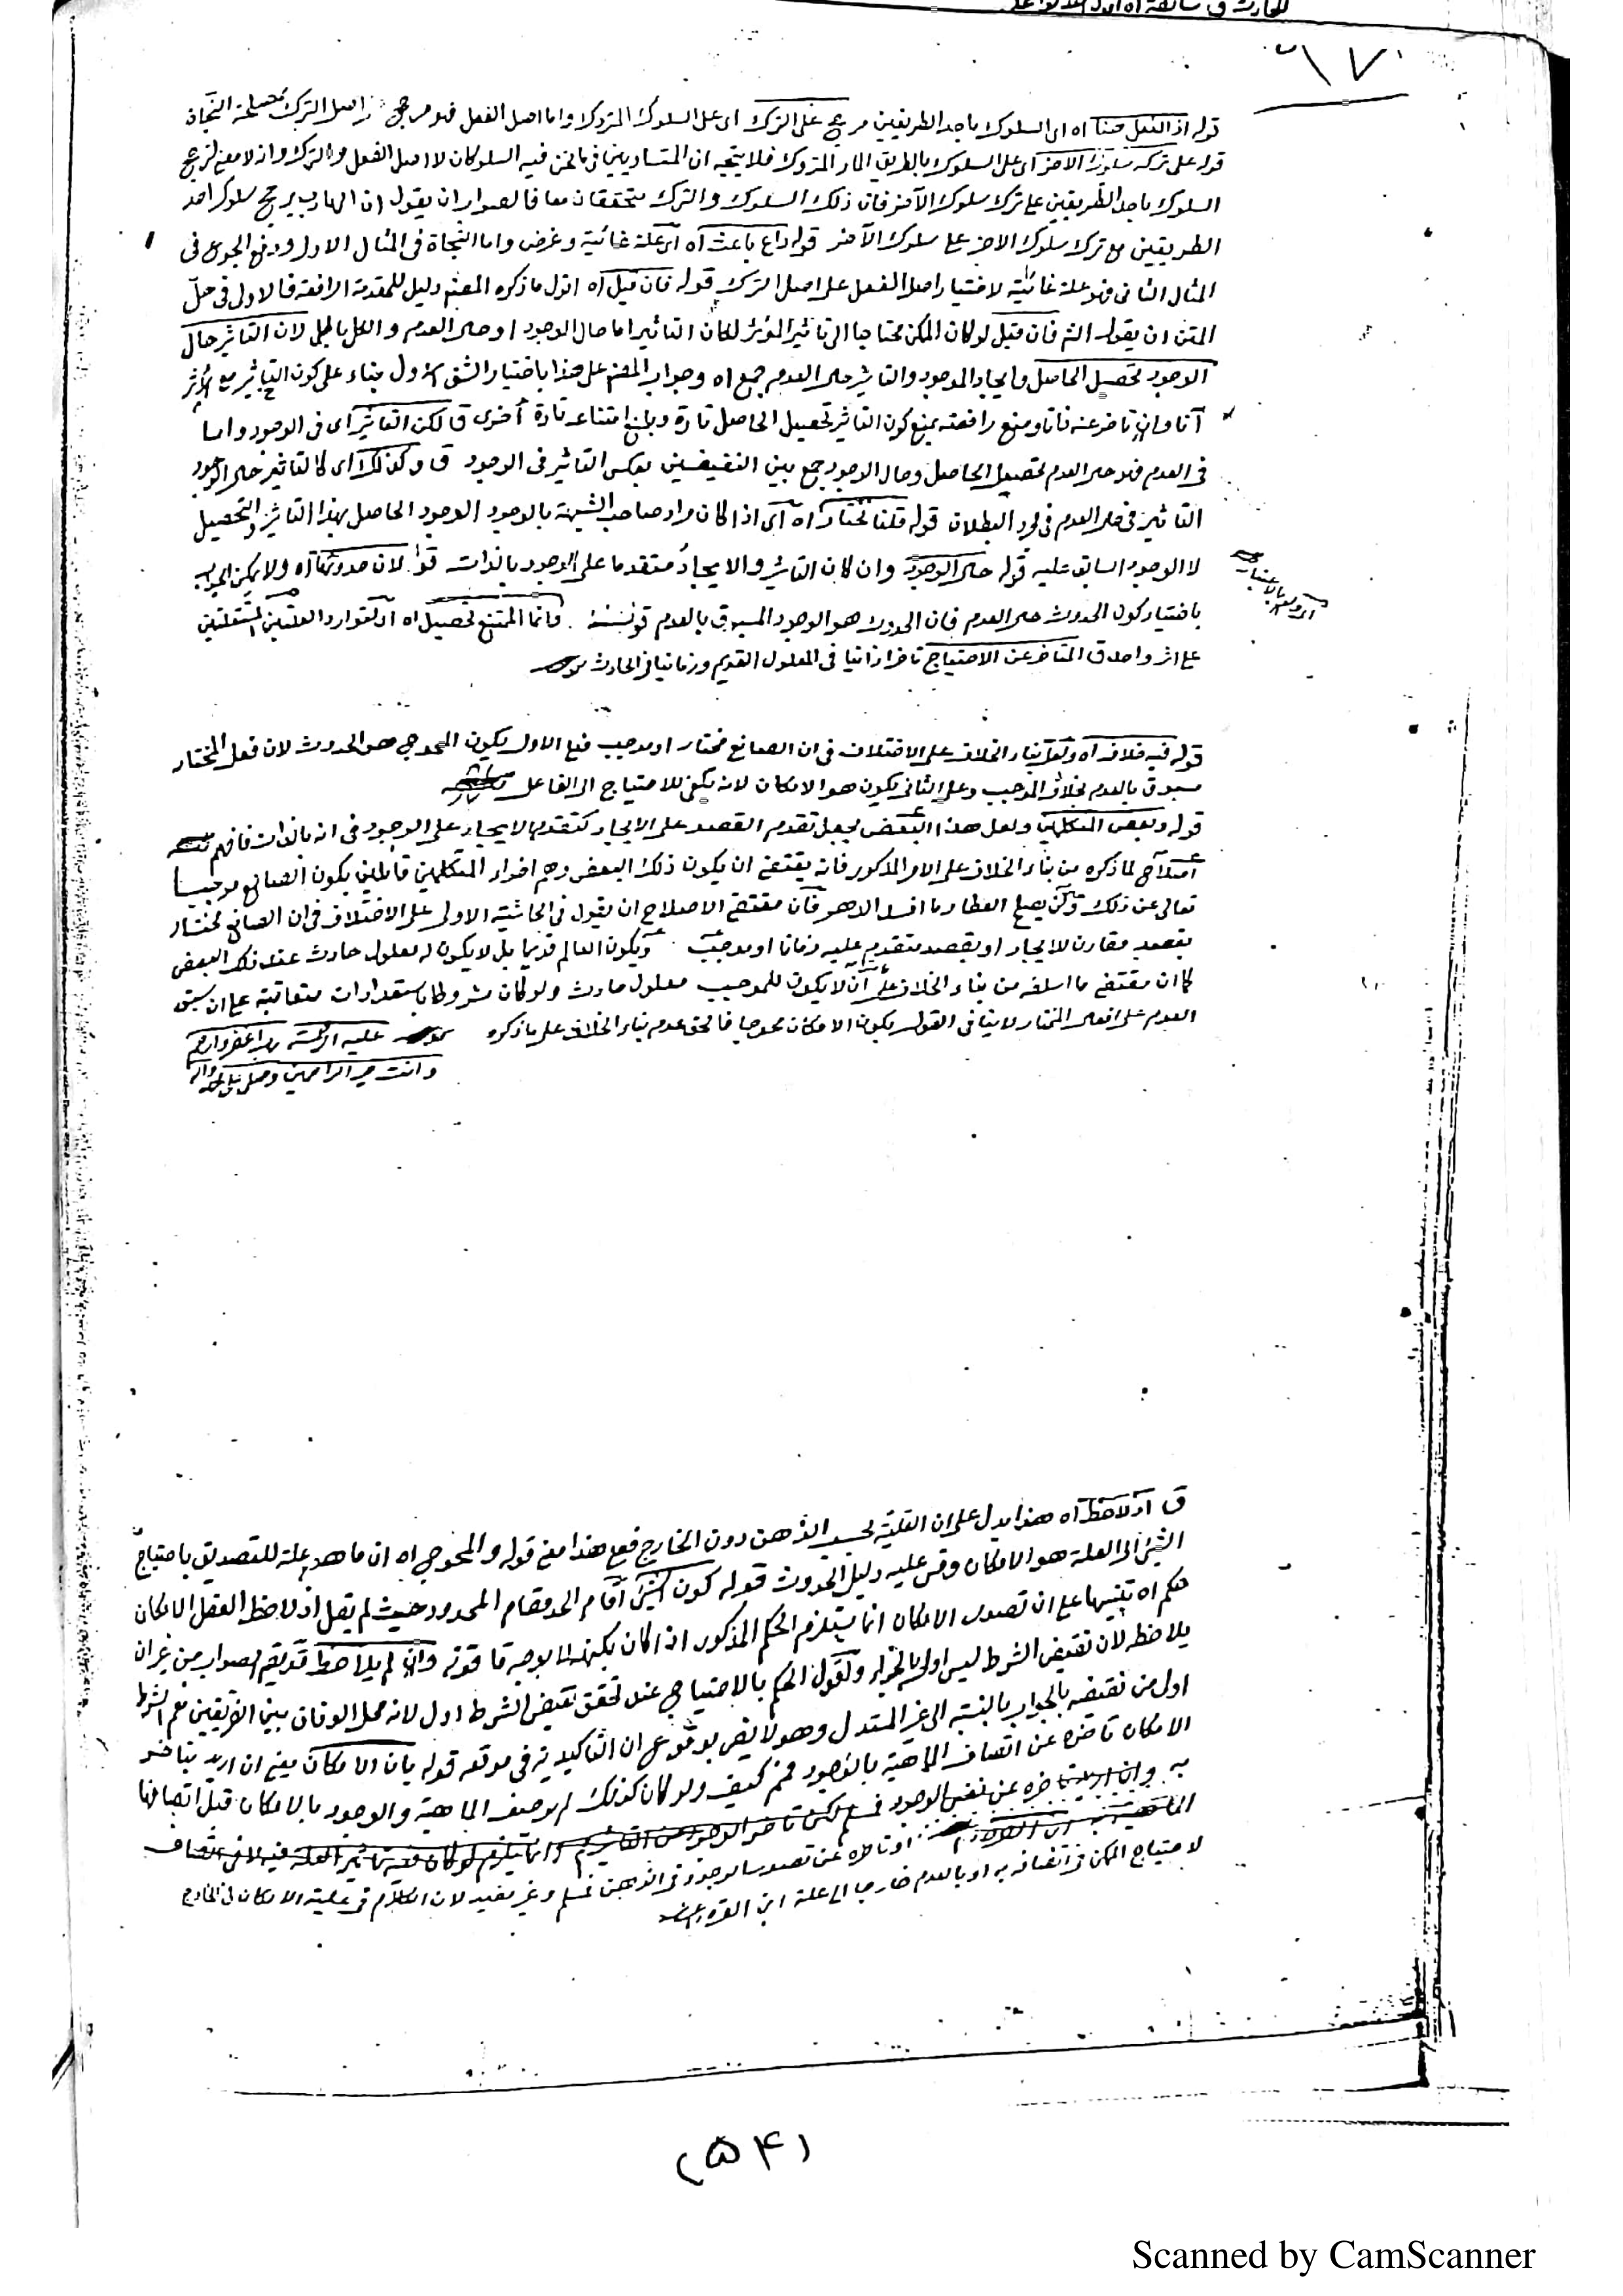 ١٧
قوله اذ الفعل هنا اه اى السلوك باحد الطريقين مرجح على الترك اى على السلوك المتروك واما اصل الفعل فهو مرجح اصل الترك لمصلحة النجاة
قوله على تركه سلوك الاخر اى على السلوك بالطريق المار المتروك فلا يتجه ان المتساويين فى ما نحن فيه السلوكان لا اصل الفعل والترك وانه لا معنى لترجيح
السلوك باحد الطريقين على ترك سلوك الآخر فان ذلك السلوك والترك متحققان معا فالصواب ان يقول ان الهارب يرجح سلوك احد
الطريقين مع ترك سلوك الاخر على سلوك الآخر قوله داع باعث اه اى علة غائية وغرض واما النجاة فى المثال الاول ودفع الجوع فى
المثال الثانى فهو علة غائية لاختيار اصل الفعل على اصل الترك قوله فان قيل اه اقول ما ذكره المصنف دليل للمقدمة الرافعة فالاولى فى حل
المتن ان يقول الشارح فان قيل لو كان الممكن محتاجا الى تاثير المؤثر لكان التاثير اما حال الوجود او حال العدم والكل باطل لان التاثير حال
الوجود تحصيل الحاصل وايجاد الموجود والتاثير حال العدم جمع اه وجواب المصنف على هذا باختيار الشق الاول بناء على كون التاثير مع الاثر
آنا وان تاخر عنه ذاتا ومنع رافعته بمنع كون التاثير تحصيل الحاصل تارة وبمنع امتناعه تارة أخرى ق لكن التاثير اى فى الوجود واما
فى العدم فهو حال العدم تحصيل الحاصل وحال الوجود جمع بين النقيضين بعكس التاثير فى الوجود ق وكذلك اى كالتاثير حال الوجود
التاثير فى حال العدم فى البطلان قوله قلنا نختار اه اى اذا كان مراد صاحب الشبهة بالوجود الوجود الحاصل بهذا التاثير والتحصيل
لا الوجود السابق عليه قوله حال الوجود وان كان التاثير والايجاد متقدما على الوجود بالذات قوله لان حدوثها اه ولا يمكن الجواب
باختيار كون الحدوث حال العدم فان الحدوث هو الوجود المسبوق بالعدم وانما الممتنع تحصيل اه او تتوارد العلتين المستقلتين
على اثر واحد ق المتاخر عن الاحتياج تاخرا ذاتيا فى المعلول القديم وزمانيا فى الحادث
قوله فيه خلاف اه ولعل بناء الخلاف على الاختلاف فى ان الصانع مختار او موجب فعلى الاول يكون المحوج هو الحدوث لان فعل المختار
مسبوق بالعدم بخلاف الموجب وعلى الثانى يكون هو الامكان لانه يكفى للاحتياج الى الفاعل
قوله وبعض المتكلمين ولعل هذا البعض يجعل تقدم القصد على الايجاد كتقدم الايجاد على الوجود فى انه بالذات فافهم
اصلاح لما ذكره من بناء الخلاف على الامر المذكور فانه يقتضى ان يكون ذلك البعض وهم افراد المتكلمين قائلين بكون الصانع موجبا
تعالى عن ذلك ولكن يصلح العطار ما افسد الدهر فان مقتضى الاصلاح ان يقول فى الحاشية الاولى على الاختلاف فى ان الصانع مختار
بقصد مقارن للايجاد او بقصد متقدم عليه زمانا او موجب ويكون العالم قديما بل لا يكون له معلول حادث عند ذلك البعض
كما ان مقتضى ما اسلفه من بناء الخلاف على ان لا يكون للموجب معلول حادث ولو كان مشروطا باستعدادات متعاقبة على ان سبق
العدم على افعال المختار لا ينافى القول بكون الامكان محوجا فالحق عدم بناء الخلاف على ما ذكره عليه الرحمة رب اغفر وارحم
وانت خير الراحمين وصلى على
ق اذ لاحظ اه هذا يدل على ان العلية بحسب الذهن دون الخارج فمع هذا معنى قوله والمحوج اه ان ما هو علة للتصديق باحتياج
الشئ الى العلة هو الامكان وقس عليه دليل الحدوث قوله كون الشئ اقام الحد مقام المحدود حيث لم يقل اذ لاحظ العقل الامكان
حكم اه تنبيها على ان تصور الامكان انما يستلزم الحكم المذكور اذا كان بكنهه لا بوجه ما قوله وان لم يلاحظ
يلاحظ لان نقيض الشرط ليس اولى بالجزاء وكقول الحكم بالاحتياج عند تحقق نقيض الشرط اولى لانه محل الوفاق بين الفريقين
اولى من نقيضه بالجواب بالنسبة الى غير المستدل قوله بان الامكان يعنى ان اريد بتاخر
الامكان تاخره عن اتصاف الماهية بالوجود فمنع كيف ولو كان كذلك لم يوصف الماهية والوجود بالامكان قبل اتصافها
به
او تاخره عن تصور الوجود فى الذهن فمسلم وغير مفيد لان الكلام فى علية الامكان فى الخارج
لاحتياج الممكن فى اتصافه به او بالعدم خارجا الى علة ابن القره
(٥٤)
Scanned by CamScanner